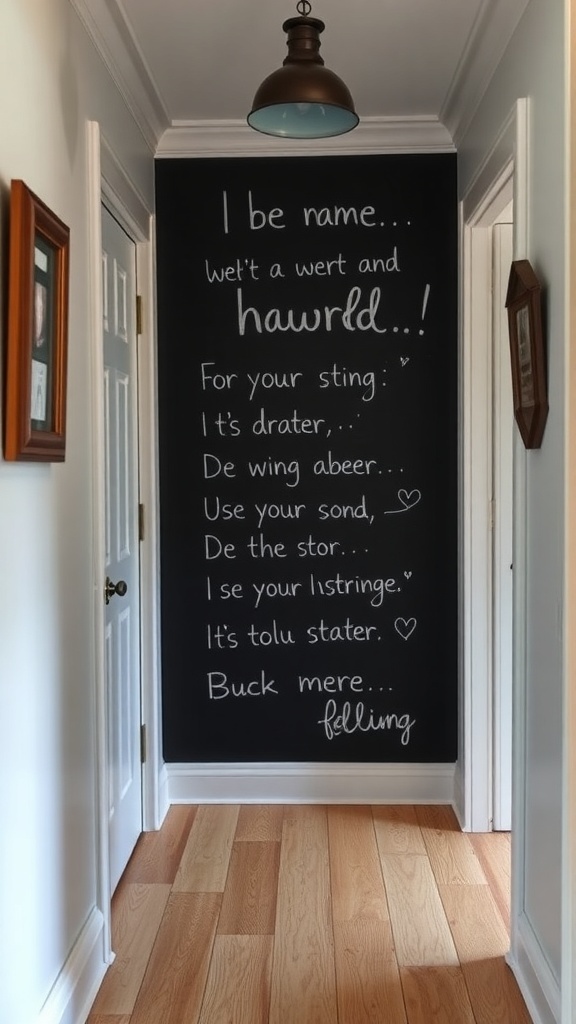 I be name...
wet't a wert and
hawrld...!
For your sting:
It's drater,...
De wing abeer...
Use your sond,
De the stor...
I se your listringe."
It's tolu stater.
Buck mere...